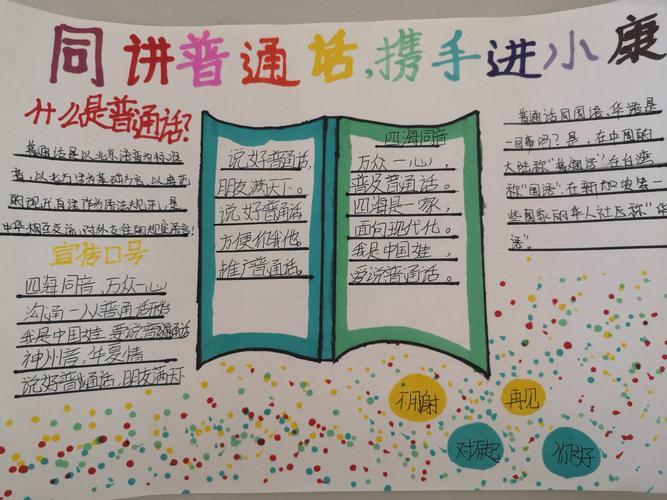 同讲普通话,携手进小康
什么是普通话?
普通话是以北京语音为标准
音,以北方话为基础方言,以典范
的现代白话作为语法规范,是
中华相互交流,对外交往的规定语言
宣传口号
四海同音 万众一心
沟通一从普通话开始
我是中国娃 要说普通话
神州音,华夏情
说好普通话,朋友满天下
说好普通话,
朋友满天下。
说好普通话
方便你我他。
推广普通话。
四海同音
万众一心,
普及普通话。
四海是一家,
面向现代化。
我是中国娃,
爱说普通话。
普通话同国语,华语是
一回事吗?是,在中国的
大陆称"普通话"在台湾
称"国语",在新加坡等一
些国家的华人社区称"华
语"。
不用谢
再见
对不起
你好